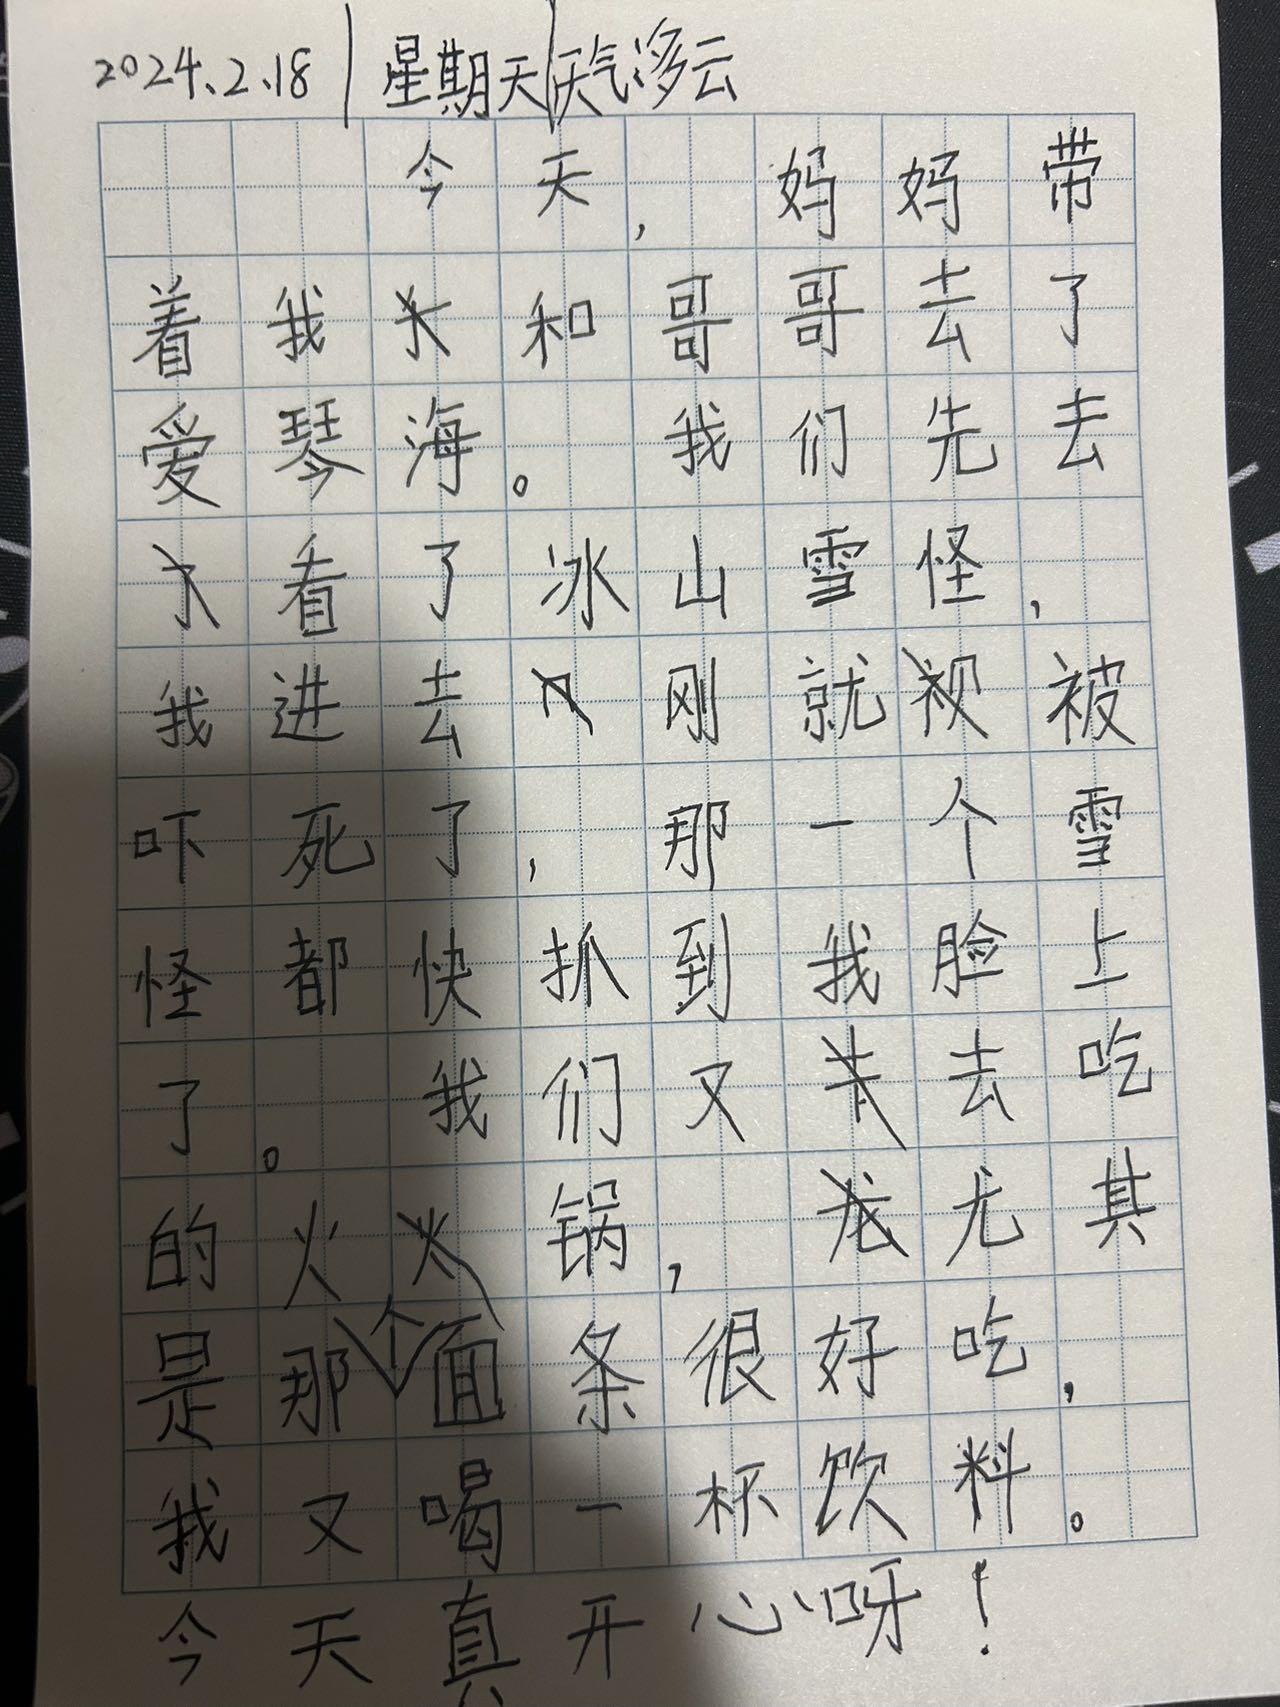 2024.2.18 | 星期天 | 天气多云
今天，妈妈带
着我和哥哥去了
爱琴海。我们先去
看了冰山雪怪，
我进去刚就被
吓死了，那一个雪
怪都快抓到我脸上
了。我们又去吃
的火锅，尤其
是那个面条很好吃，
我又喝一杯饮料。
今天真开心呀！